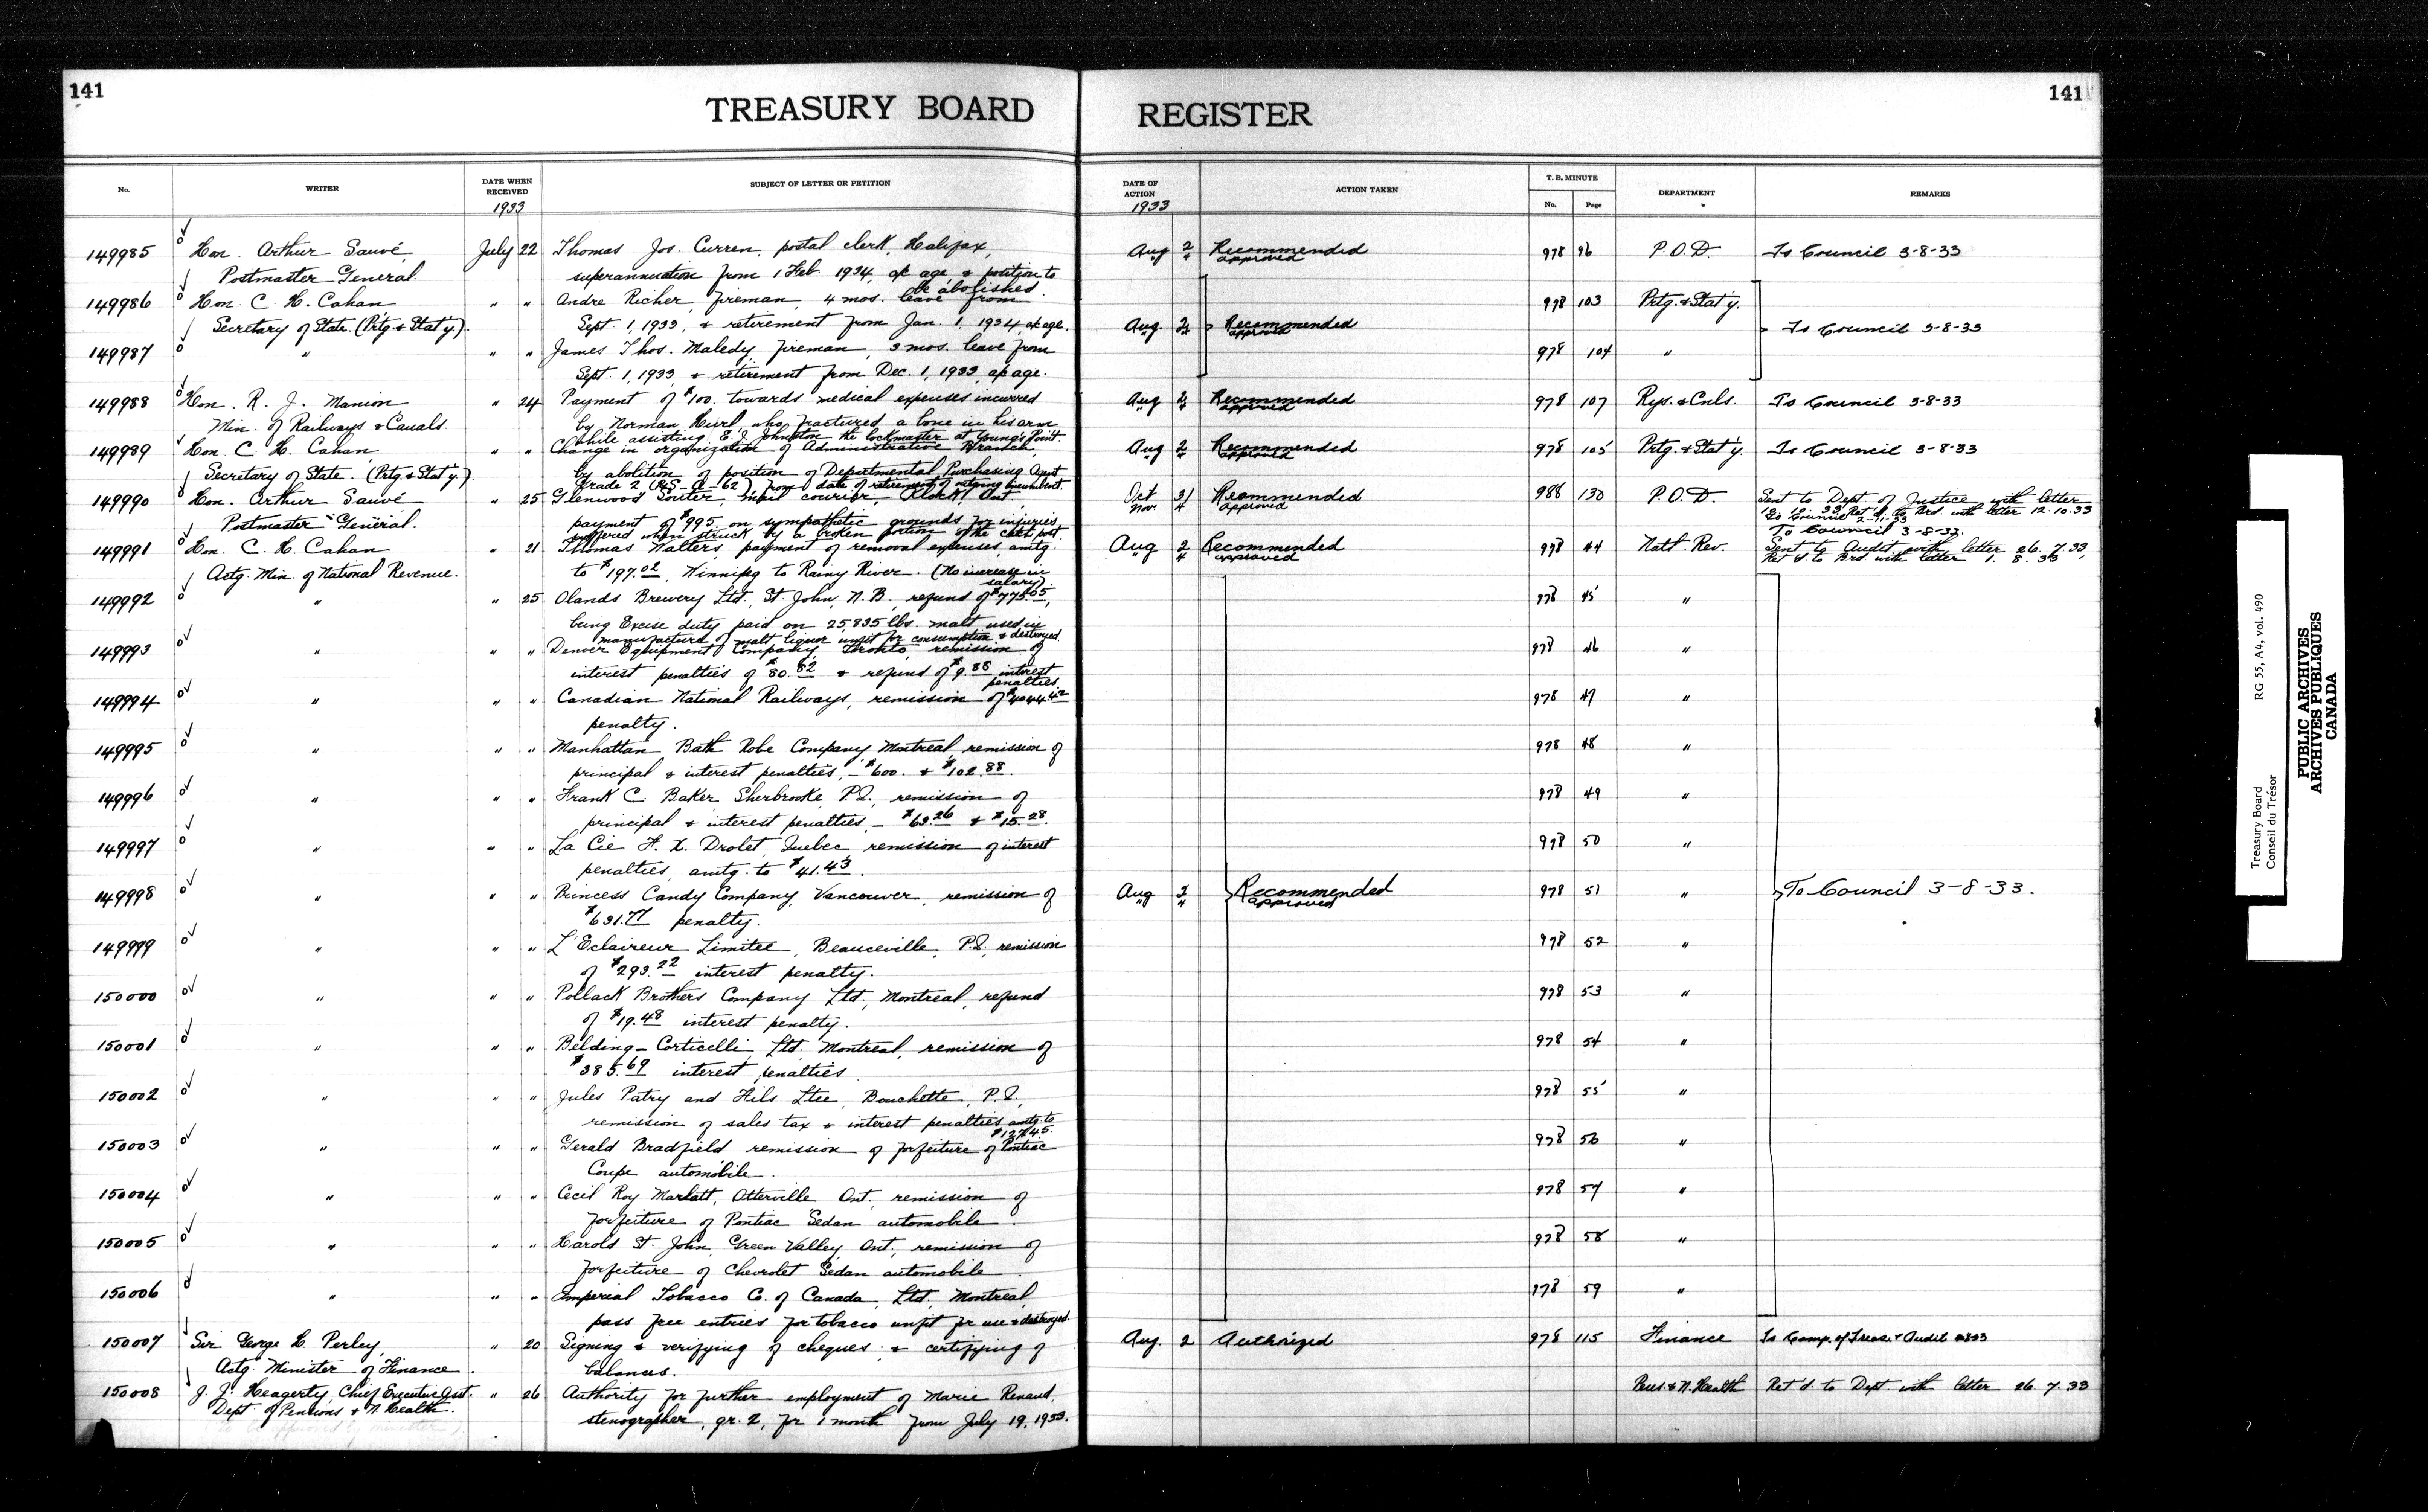 141
TREASURY BOARD REGISTER
141
No.
WRITER
DATE WHEN RECEIVED
1933
SUBJECT OF LETTER OR PETITION
DATE OF ACTION
1933
ACTION TAKEN
T. B. MINUTE
No.
Page
DEPARTMENT
REMARKS
149985 Hon. Arthur Sauvé, July 22 Thomas Jos. Curren, postal clerk, Halifax, Aug 2 Recommended 978 96 P.O.D. To Council 3-8-33
Postmaster General. superannuation from 1 Feb. 1934, a/c age & position to " 4 approved
be abolished.
149986 Hon. C. H. Cahan " " Andre Richer, fireman, 4 mos. leave from 978 103 Prtg. & Stat'y.
Secretary of State. (Prtg. & Stat'y.) Sept. 1, 1933, & retirement from Jan. 1, 1934, a/c age. Aug. 2 Recommended To Council 3-8-33
" 4 approved
149987 " " " James Thos. Maledy, fireman, 3 mos. leave from 978 104 "
Sept. 1, 1933, & retirement from Dec. 1, 1933, a/c age.
149988 Hon. R. J. Manion " 24 Payment of $100. towards medical expenses incurred Aug 2 Recommended 978 107 Rys. & Cnls. To Council 3-8-33
Min. of Railways & Canals. by Norman, who fractured a bone in his arm " 4 approved
while assisting E. J. Johnston the lockmaster at Young's Point.
149989 Hon. C. H. Cahan, " " Change in organization of Administrative Branch, Aug 2 Recommended 978 105 Prtg. & Stat'y. To Council 3-8-33
Secretary of State. (Prtg. & Stat'y.) by abolition of position of Departmental Purchasing Agent " 4 approved
Grade 2 from date of retirement of incumbent.
149990 Hon. Arthur Sauvé " 25 Glenwood Souter, mail courier, Ont. Oct 31 Recommended 988 130 P.O.D. Sent to Dept. of Justice with letter
Nov. 4 approved Ret'd. to Brd. with letter 12.10.33
Postmaster General. payment of $995. on sympathetic grounds for injuries To Council 2-11-33
suffered when struck by a broken portion of the post.
To Council 3-8-33.
149991 Hon. C. H. Cahan " 21 Thomas Walters, payment of removal expenses, amtg. Aug 2 Recommended 978 44 Natl. Rev. Sent to Audit with letter 26.7.33,
Actg. Min. of National Revenue. to $197.02, Winnipeg to Rainy River. (No increase in salary). " 4 approved Ret'd. to Brd with letter 1.8.33
149992 " " 25 Olands Brewery Ltd., St. John, N.B., refund of $775.05, 978 45 "
being Excise duty paid on 25,835 lbs. malt used in
manufacture of malt liquor unfit for consumption & destroyed.
149993 " " " Denver Equipment Company, Toronto, remission of 978 46 "
interest penalties of $80.62 & refund of $9.88 interest
penalties.
149994 " " " Canadian National Railways, remission of $4044.42 978 47 "
penalty.
149995 " " " Manhattan Bath Robe Company, Montreal, remission of 978 48 "
principal & interest penalties, – $600. & $102.88.
149996 " " " Frank C. Baker, Sherbrooke, P.Q., remission of 978 49 "
principal & interest penalties, – $63.26 & $15.28.
149997 " " " La Cie F. X. Drolet, Quebec, remission of interest 978 50 "
penalties, amtg. to $41.43.
149998 " " " Princess Candy Company, Vancouver, remission of Aug 2 Recommended 978 51 " To Council 3-8-33.
$631.77 penalty. " 4 approved
149999 " " " L'Eclaireur Limitee, Beauceville, P.Q., remission 978 52 "
of $293.22 interest penalty.
150000 " " " Pollack Brothers Company Ltd., Montreal, refund 978 53 "
of $19.48 interest penalty.
150001 " " " Belding-Corticelli, Ltd. Montreal, remission of 978 54 "
$385.69 interest penalties
150002 " " " Jules Patry and Fils Ltee, Bouchette, P.Q., 978 55 "
remission of sales tax & interest penalties amtg. to
150003 " " " Gerald Bradfield remission of forfeiture of Pontiac 978 56 "
Coupe automobile.
150004 " " " Cecil Roy Marlatt, Otterville Ont., remission of 978 57 "
forfeiture of Pontiac Sedan automobile.
150005 " " " Harold St. John, Green Valley, Ont., remission of 978 58 "
forfeiture of Chevrolet Sedan automobile.
150006 " " " Imperial Tobacco Co. of Canada, Ltd., Montreal, 978 59 "
pass free entries for tobacco unfit for use & destroyed.
150007 Sir George H. Perley, " 20 Signing & verifying of cheques; & certifying of Aug. 2 Authorized 978 115 Finance To Comp. of Treas. & Audit
Actg. Minister of Finance. balances.
150008 J. J. Heagerty, Chief Executive Asst. " 26 Authority for further employment of Marie Renaud, Pens. & N. Health Ret'd. to Dept with letter 26.7.33
Dept. of Pensions & N. Health. stenographer, gr. 2, for 1 month from July 19, 1933.
Treasury Board RG 55, A4, vol. 490
Conseil du Trésor
PUBLIC ARCHIVES
ARCHIVES PUBLIQUES
CANADA